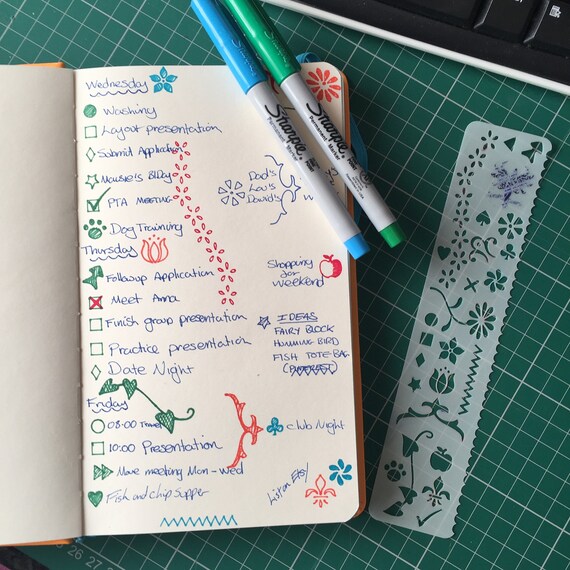 Wednesday
Washing
Layout presentation
Submit Application
Mousie's BDay
PTA MEETING
Dog Training
Thursday
Followup Application
Meet Anna
Finish group presentation
Practice presentation
Date Night
Friday
08:00 Travel
10:00 Presentation
Move meeting Mon-Wed
Fish and chip supper
Dad's
Lou's
David's
W
Shopping
for
weekend
IDEAS
FAIRY BLOCK
HUMMING BIRD
FISH TOTE-BAG
Club Night
List on Etsy
Sharpie
PERMANENT MARKER
Sharpie
PERMANENT MARKER
26 27